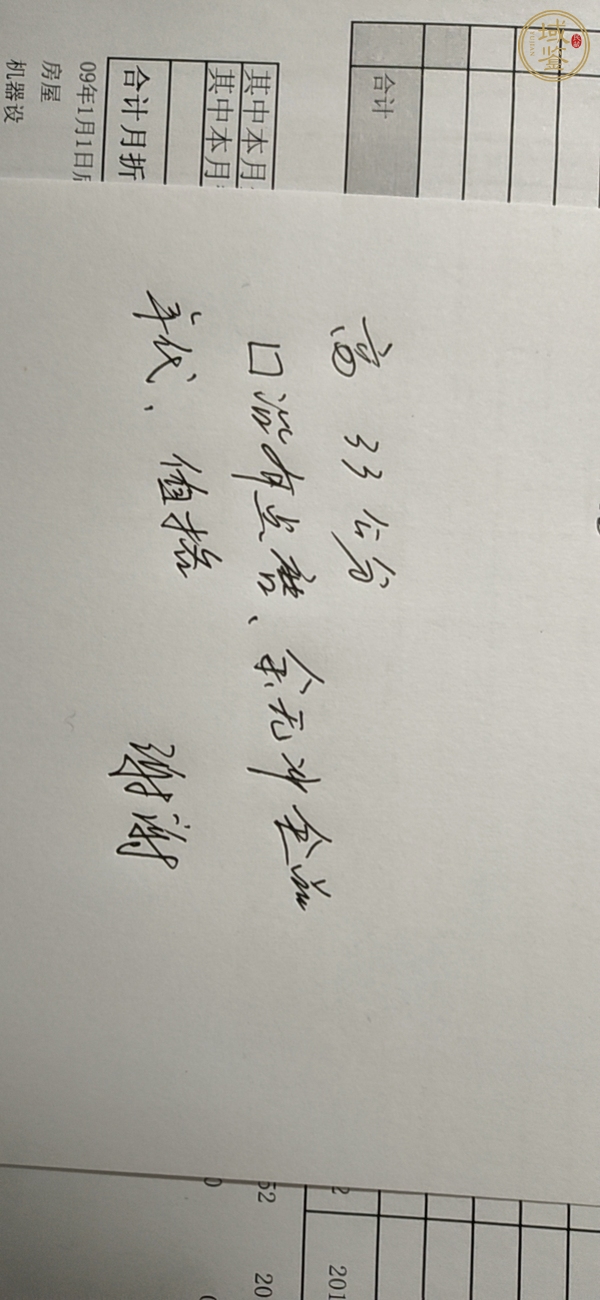 合计
其中本月
其中本月
合计月折
09年1月1日
房屋
机器设
高 33公分
口沿有点磨、余无冲全美
年代、值格
谢谢
2
52
0
201
20